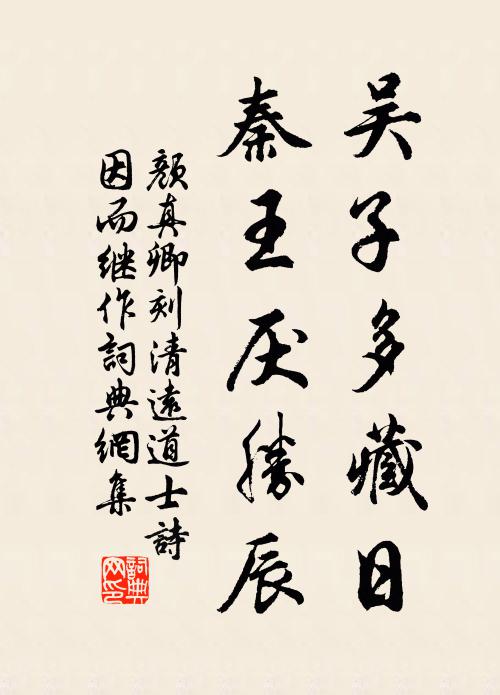 吴子多藏日
秦王厌勝辰
顏真卿刻清遠道士詩
因而继作詞典網集
詞典網印